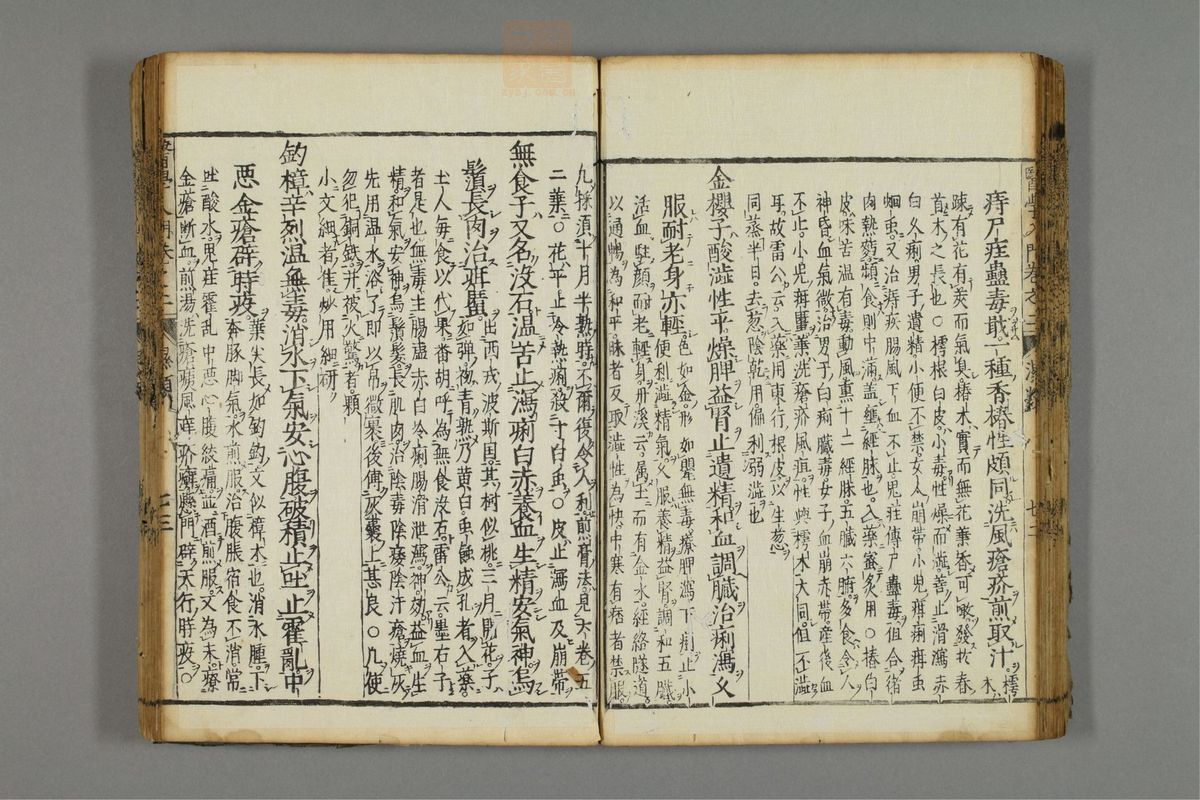 疳尸疰蠱毒戢一種香椿性頗同洗風瘡疥煎取汁樗木
踈有花有莢而氣臭椿木實而無花葉香可噉發於春
首木之長也○樗根白皮小毒性燥而澁善止滑瀉赤
白久痢男子遺精小便不禁女人崩帶小兒疳痢疳虫
蛔虫又治痔疾腸風下血不止鬼疰傳尸蠱毒但合猪
肉熱麪頻食則中滿盖壅經脉也入藥蜜炙用○椿白
皮味苦温有毒動風熏十二經脉五臟六腑多食令人
神昏血氣微治男子白痢臟毒女子血崩赤帶產後血
不止小兒疳䘌葉洗瘡疥風疽性與樗木大同但不澁
耳故雷公云入藥用東行根皮以生葱
同蒸半日去葱陰乾用偏利溺澁也
金櫻子酸澁性平燥脾益腎止遺精和血調臟治痢瀉久
服耐老身亦輕色如金形如罌無毒療脾瀉下痢止小
便利澁精氣久服養精益腎調和五臟
活血駐顔耐老輕身丹溪云属土而有金水經絡隧道
以通暢為和平昧者反取澁性為快中寒有痞者禁服
九採須十月半熟時不爾復令人利煎膏法見六卷五
二葉○花平止冷熱痢殺寸白虫○皮止瀉血及崩帶
無食子又名沒石温苦止瀉痢白赤養血生精安氣神烏
鬚長肉治疳䘌出西戎波斯国其柯似桃三月開花子
如彈初青熟乃黄白虫蝕成孔者入藥
土人每食以代果番胡呼為無食沒石雷公云墨石子
者是也無毒主腸虛赤白冷痢腸滑泄瀉神効益血生
精和氣安神烏鬚髮長肌肉治陰毒陰痿陰汗瘡燒灰
先用温水浴了即以帛微裹後傅灰囊上甚良○凡使
勿犯銅鉄并被火驚者顆
小文細者隹炒用細研
釣樟辛烈温無毒消水下氣安心腹破積止吐止霍亂中
惡金瘡辟時疫葉尖長如釣釣文似樟木也消水腫下
奔豚脚氣水煎服治腹脹宿食不消常
吐酸水鬼疰霍乱中惡心腹絞痛並酒煎服又為末療
金瘡断血煎湯洗瘡痍風痒疥癬懸門辟天行時疫○